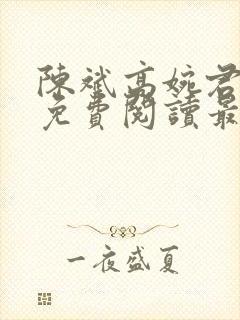 陳斌高婉君
免費閱讀最
一夜盛夏